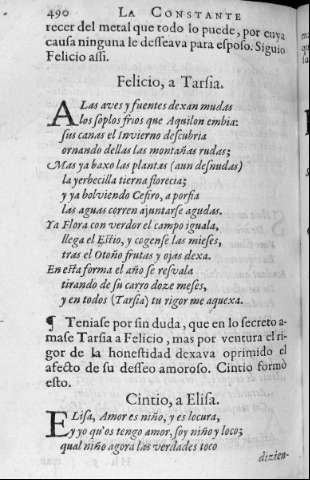 490 LA CONSTANTE
recer del metal que todo lo puede, por cuya
causa ninguna le desseava para esposo. Siguio
Felicio assi.
Felicio, a Tarsia.
A Las aves y fuentes dexan mudas
los soplos frios que Aquilon embia:
sus canas el Invierno descubria
ornando dellas las montañas rudas;
Mas ya baxo las plantas (aun desnudas)
la yerbecilla tierna florecia;
y ya bolviendo Cefiro, a porfia
las aguas corren a juntarse agudas.
Ya Flora con verdor el campo iguala,
llega el Estio, y cogense las mieses,
tras el Otoño frutas y ojas dexa.
En esta forma el año se resvala
tirando de su carro doze meses,
y en todos (Tarsia) tu rigor me aquexa.
¶ Teniase por sin duda, que en lo secreto a-
mase Tarsia a Felicio, mas por ventura el ri-
gor de la honestidad dexava oprimido el
afecto de su desseo amoroso. Cintio formò
esto.
Cintio, a Elisa.
ELisa, Amor es niño, y es locura,
y yo qu'os tengo amor, soy niño y loco;
qual niño agora las verdades toco
dizien-